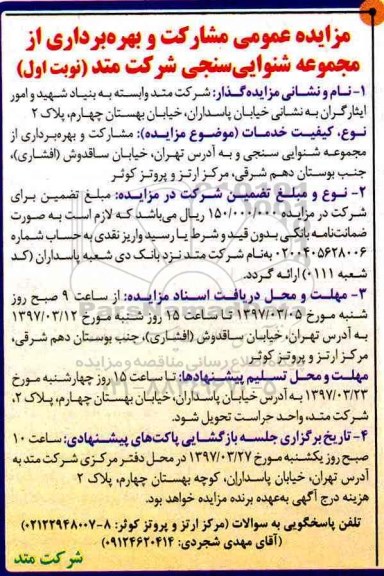 مزایده عمومی مشارکت و بهره‌برداری از
مجموعه شنوایی‌سنجی شرکت متد (نوبت اول)
۱- نام و نشانی مزایده‌گذار: شرکت متد وابسته به بنیاد شهید و امور
ایثارگران به نشانی خیابان پاسداران، خیابان بهستان چهارم، پلاک ۲
نوع، کیفیت خدمات (موضوع مزایده): مشارکت و بهره‌برداری از
مجموعه شنوایی سنجی و به آدرس تهران، خیابان ساقدوش (افشاری)،
جنب بوستان دهم شرقی، مرکز ارتز و پروتز کوثر
۲- نوع و مبلغ تضمین شرکت در مزایده: مبلغ تضمین برای
شرکت در مزایده ۱۵۰/۰۰۰/۰۰۰ ریال می‌باشد که لازم است به صورت
ضمانت‌نامه بانکی بدون قید و شرط یا رسید واریز نقدی به حساب شماره
۰۲۰۰۳۰۵۶۲۸۰۰۶ به‌نام شرکت متد نزد بانک دی شعبه پاسداران (کد
شعبه ۰۱۱۱) ارائه گردد.
۳- مهلت و محل دریافت اسناد مزایده: از ساعت ۹ صبح روز
شنبه مورخ ۱۳۹۷/۰۳/۰۵ تا ساعت ۱۵ روز شنبه مورخ ۱۳۹۷/۰۳/۱۲
به آدرس تهران، خیابان ساقدوش (افشاری)، جنب بوستان دهم شرقی،
مرکز ارتز و پروتز کوثر
مهلت و محل تسلیم پیشنهادها: تا ساعت ۱۵ روز چهارشنبه مورخ
۱۳۹۷/۰۳/۲۳ به آدرس خیابان پاسداران، خیابان بهستان چهارم، پلاک ۲،
شرکت متد، واحد حراست تحویل شود.
۴- تاریخ برگزاری جلسه بازگشایی پاکت‌های پیشنهادی: ساعت ۱۰
صبح روز یکشنبه مورخ ۱۳۹۷/۰۳/۲۷ در محل دفتر مرکزی شرکت متد به
آدرس تهران، خیابان پاسداران، کوچه بهستان چهارم، پلاک ۲
هزینه درج آگهی به‌عهده برنده مزایده خواهد بود.
تلفن پاسخگویی به سوالات (مرکز ارتز و پروتز کوثر: ۸-۰۲۱۲۲۹۴۸۰۰۷)
(آقای مهدی شجردی: ۰۹۱۲۴۶۲۰۴۱۴)
شرکت متد